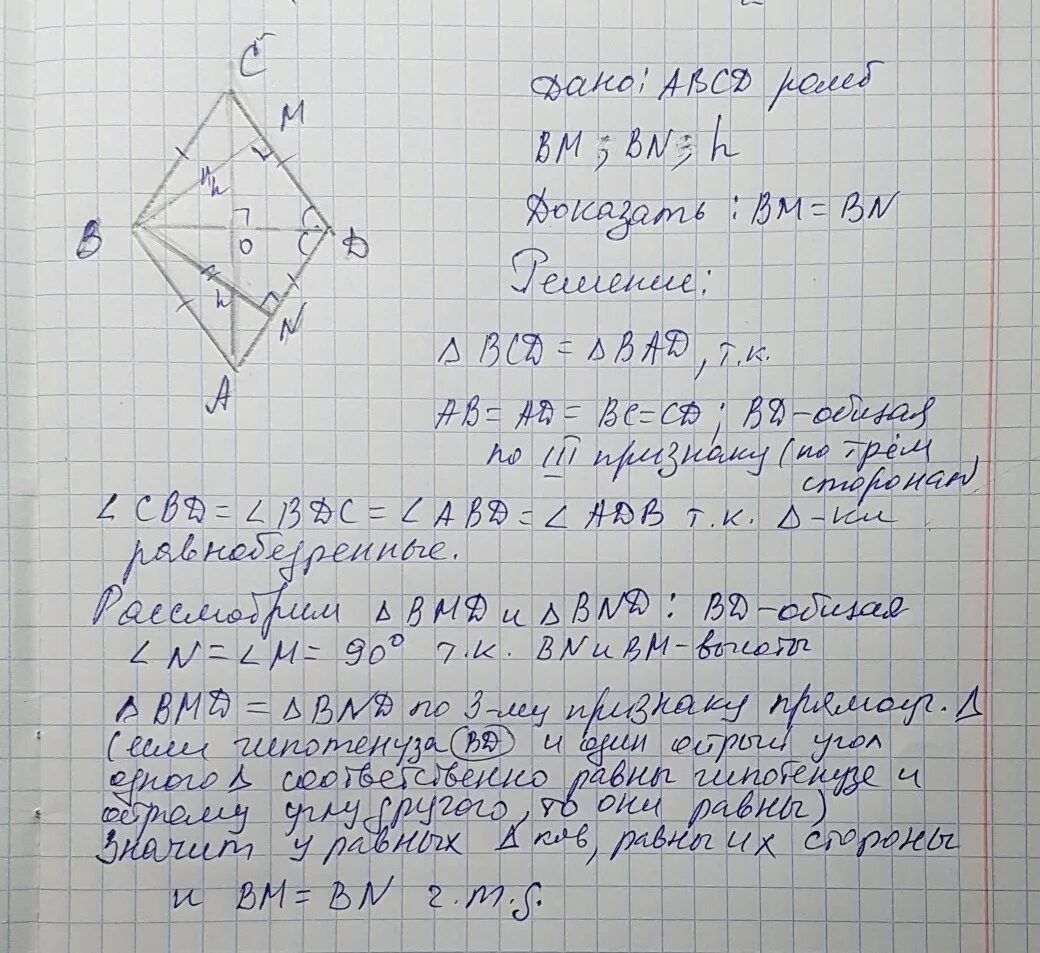 C
M
h
B
O
D
h
N
A
Дано: ABCD ромб
BM ; BN ; h
Доказать : BM = BN
Решение:
Δ BCD = Δ BAD, т.к.
AB = AD = BC = CD ; BD – общая
по III признаку (по трём
сторонам)
∠ CBD = ∠ BDC = ∠ ABD = ∠ ADB т.к. Δ-ки
равнобедренные.
Рассмотрим Δ BMD и Δ BND : BD – общая
∠ N = ∠ M = 90° т.к. BN и BM – высоты
Δ BMD = Δ BND по 3-му признаку прямоуг. Δ
(если гипотенуза BD и один острый угол
одного Δ соответственно равны гипотенузе и
острому углу другого, то они равны)
Значит у равных Δ ков, равны их стороны
и BM = BN ч.т.д.